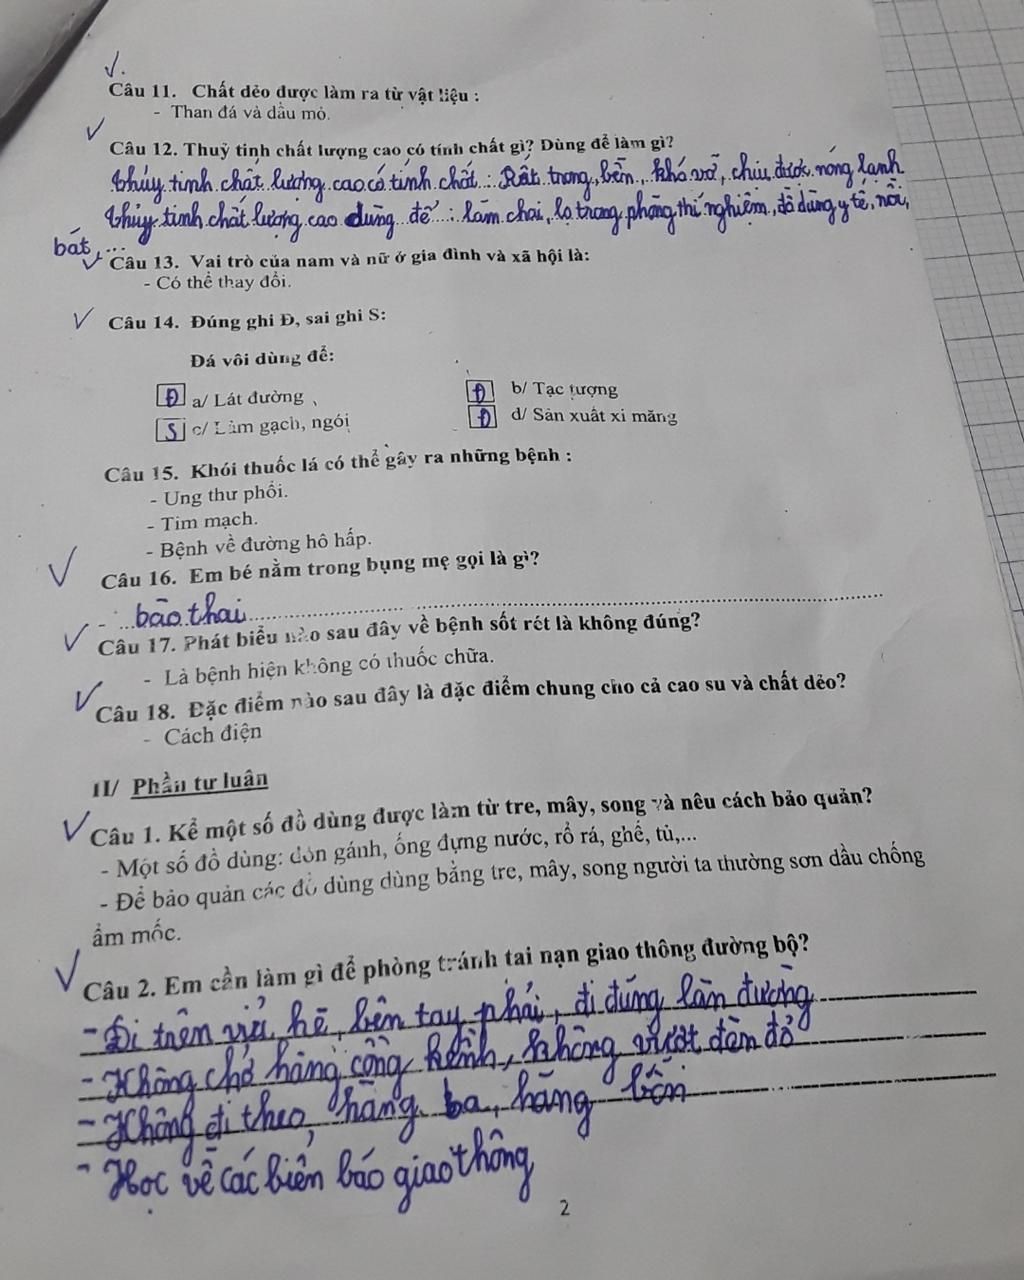 Câu 11. Chất dẻo được làm ra từ vật liệu :
- Than đá và dầu mỏ.
Câu 12. Thuỷ tinh chất lượng cao có tính chất gì? Dùng để làm gì?
thủy tinh chất lượng cao có tính chất : Rất trong, bền, khó vỡ, chịu được nóng lạnh
thủy tinh chất lượng cao dùng để : làm chai, lọ trong phòng thí nghiệm, đồ dùng y tế, nồi,
bát, ...
Câu 13. Vai trò của nam và nữ ở gia đình và xã hội là:
- Có thể thay đổi.
Câu 14. Đúng ghi Đ, sai ghi S:
Đá vôi dùng để:
Đ a/ Lát đường Đ b/ Tạc tượng
S c/ Làm gạch, ngói Đ d/ Sản xuất xi măng
Câu 15. Khói thuốc lá có thể gây ra những bệnh :
- Ung thư phổi.
- Tim mạch.
- Bệnh về đường hô hấp.
Câu 16. Em bé nằm trong bụng mẹ gọi là gì?
- bào thai
Câu 17. Phát biểu nào sau đây về bệnh sốt rét là không đúng?
- Là bệnh hiện không có thuốc chữa.
Câu 18. Đặc điểm nào sau đây là đặc điểm chung cho cả cao su và chất dẻo?
- Cách điện
II/ Phần tự luân
Câu 1. Kể một số đồ dùng được làm từ tre, mây, song và nêu cách bảo quản?
- Một số đồ dùng: đòn gánh, ống đựng nước, rổ rá, ghế, tủ,...
- Để bảo quản các đồ dùng dùng bằng tre, mây, song người ta thường sơn dầu chống
ẩm mốc.
Câu 2. Em cần làm gì để phòng tránh tai nạn giao thông đường bộ?
- Đi trên vỉa hè, bên tay phải, đi đúng làn đường
- Không chở hàng cồng kềnh, không vượt đèn đỏ
- Không đi theo hàng ba, hàng bốn
- Học về các biển báo giao thông
2